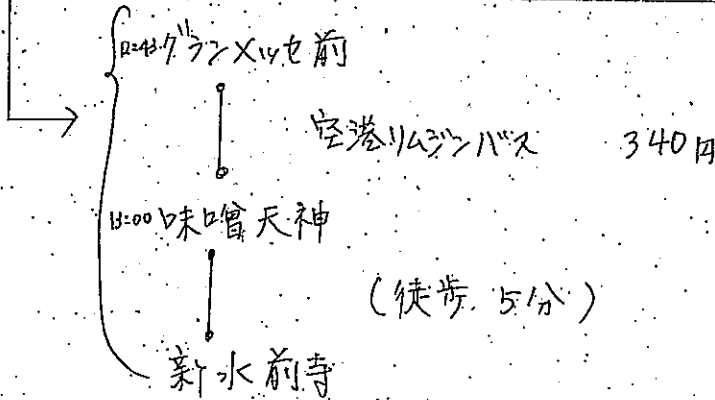 12:43 グランメッセ前
空港リムジンバス 340円
13:00 味噌天神
(徒歩 5分)
新水前寺